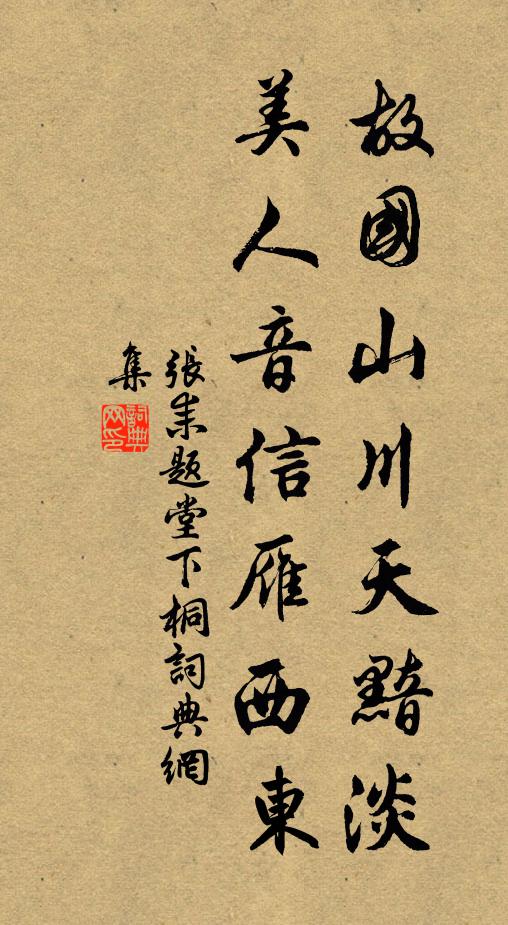 故國山川天黯淡
美人音信雁西東
張耒題堂下桐詞典網
集
詞典
网印